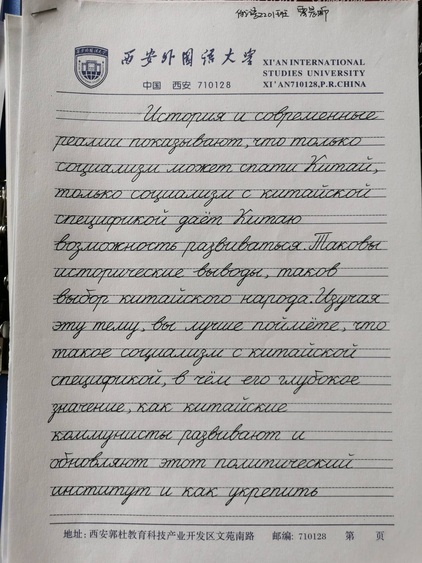 俄语2201班
西安外国语大学
XI'AN INTERNATIONAL
STUDIES UNIVERSITY
中国 西安 710128
XI'AN710128,P.R.CHINA
История и современные
реалии показывают, что только
социализм может спати Китай,
только социализм с китайской
спецификой даёт Китаю
возможность развиваться. Таковы
исторические выводы, таков
выбор китайского народа. Изучая
эту тему, вы лучше поймёте, что
такое социализм с китайской
спецификой, в чём его глубокое
значение, как китайские
коммунисты развивают и
обновляют этот политический
институт и как укрепить
地址: 西安郭杜教育科技产业开发区文苑南路 邮编: 710128 第 页